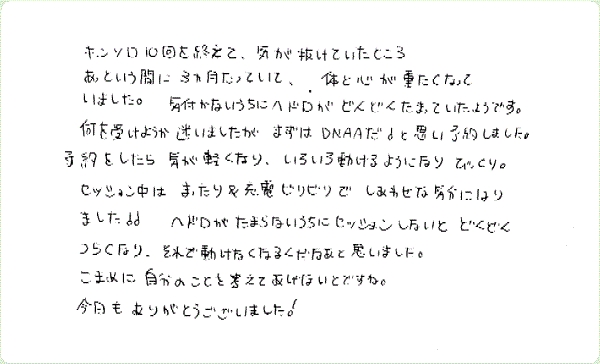 ホンソロ10回を終えて、気が抜けていたところ
あっという間に3か月たっていて、体と心が重たくなって
いました。気付かないうちにヘドロがどんどくたまっていたようです。
何を受けようか迷いましたがまずはDNAAだ♪と思い予約しました。
予約をしたら気が軽くなり、いろいろ動けるようになりびっくり。
セッション中はまったり&充電ビリビリでしあわせな気分になり
ました♪♪ヘドロがたまらないうちにセッションしないとどんどん
つらくなり、それで動けなくなるんだなあと思いました。
こまめに自分のことを考えてあげないとですね。
今日もありがとうございました!